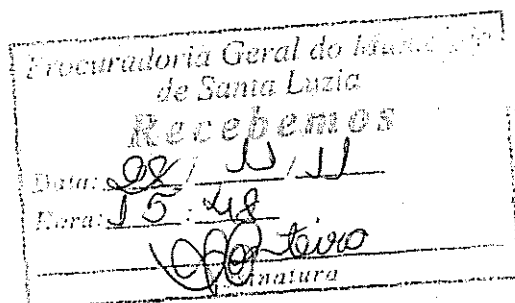 Procuradoria Geral do Município
de Santa Luzia
Recebemos
Data: / 11 / 11
Hora: 15 : 48
Assinatura